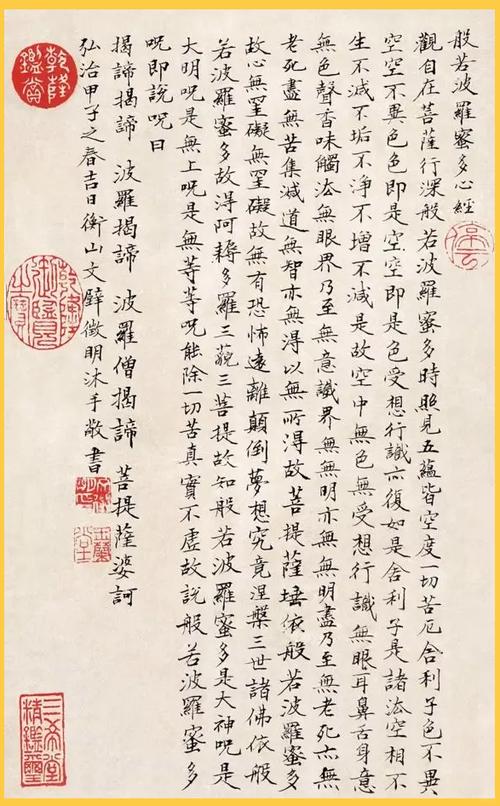 般若波羅蜜多心經
觀自在菩薩行深般若波羅蜜多時照見五蘊皆空度一切苦厄舍利子色不異
空空不異色色即是空空即是色受想行識亦復如是舍利子是諸法空相不
生不滅不垢不淨不增不減是故空中無色無受想行識無眼耳鼻舌身意
無色聲香味觸法無眼界乃至無意識界無無明亦無無明盡乃至無老死亦無
老死盡無苦集滅道無智亦無得以無所得故菩提薩埵依般若波羅蜜多
故心無罣礙無罣礙故無有恐怖遠離顛倒夢想究竟涅槃三世諸佛依般
若波羅蜜多故得阿耨多羅三藐三菩提故知般若波羅蜜多是大神呪是
大明呪是無上呪是無等等呪能除一切苦真實不虛故說般若波羅蜜多
呪即說呪曰
揭諦揭諦 波羅揭諦 波羅僧揭諦 菩提薩婆訶
弘治甲子之春吉日衡山文壁徵明沐手敬書
乾隆鑑賞
乾隆御覽之寶
三希堂精鑑璽